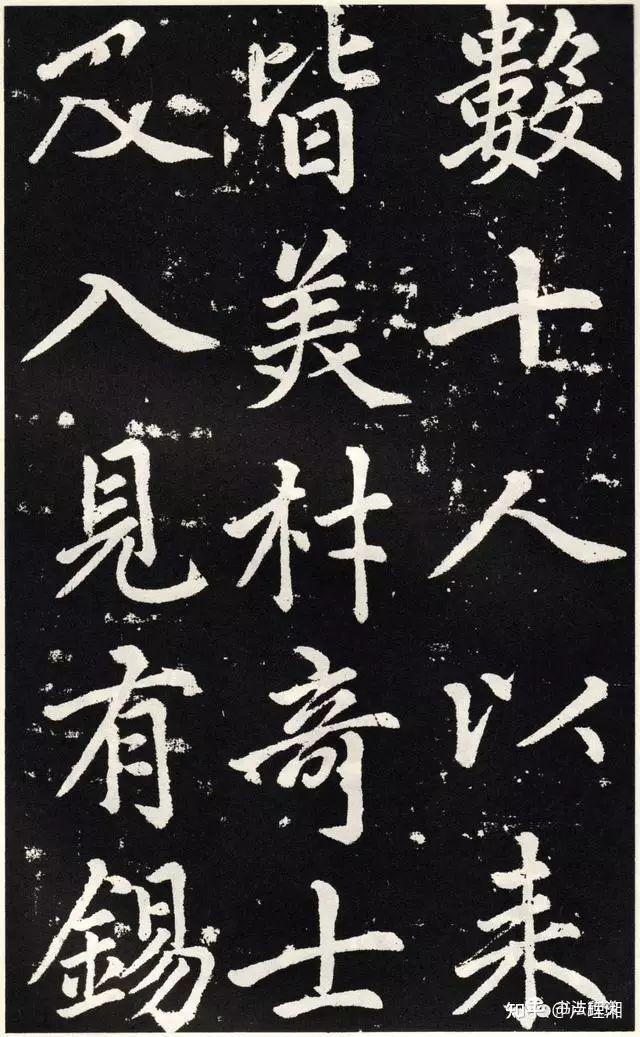 數十人以来
皆美材奇士
及入見有錫
知乎